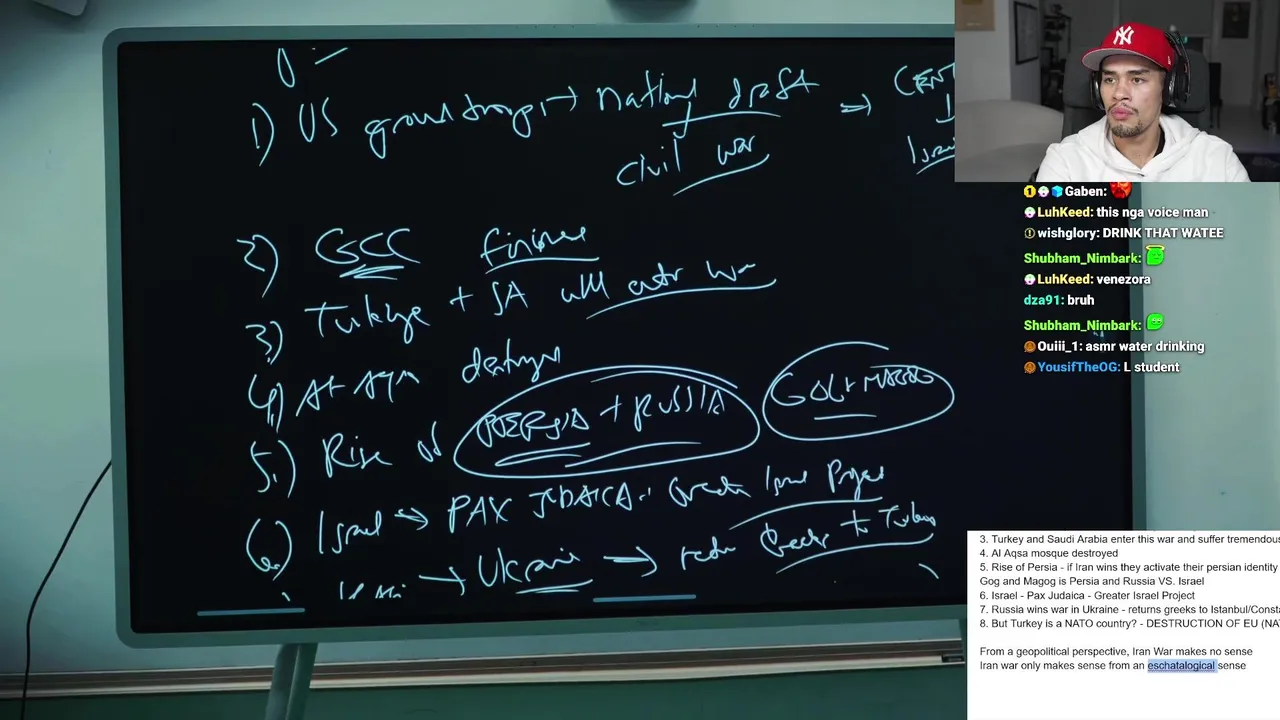 1) US ground troops → National draft → CENT
civil war
Israe
2) GCC finished
3) Turkiye + SA will enter war
4) Al Aqsa destroyed
5.) Rise of PERSIA + RUSSIA GOG + MAGOG
6.) Israel → PAX JUDAICA Greater Israel Project
→ Ukraine → return Greeks to Turkey
NY
Gaben:
LuhKeed: this nga voice man
wishglory: DRINK THAT WATEE
Shubham_Nimbark:
LuhKeed: venezora
dza91: bruh
Shubham_Nimbark:
Ouiii_1: asmr water drinking
YousifTheOG: L student
3. Turkey and Saudi Arabia enter this war and suffer tremendous
4. Al Aqsa mosque destroyed
5. Rise of Persia - if Iran wins they activate their persian identity
Gog and Magog is Persia and Russia VS. Israel
6. Israel - Pax Judaica - Greater Israel Project
7. Russia wins war in Ukraine - returns greeks to Istanbul/Consta
8. But Turkey is a NATO country? - DESTRUCTION OF EU (NA
From a geopolitical perspective, Iran War makes no sense
Iran war only makes sense from an eschatalogical sense